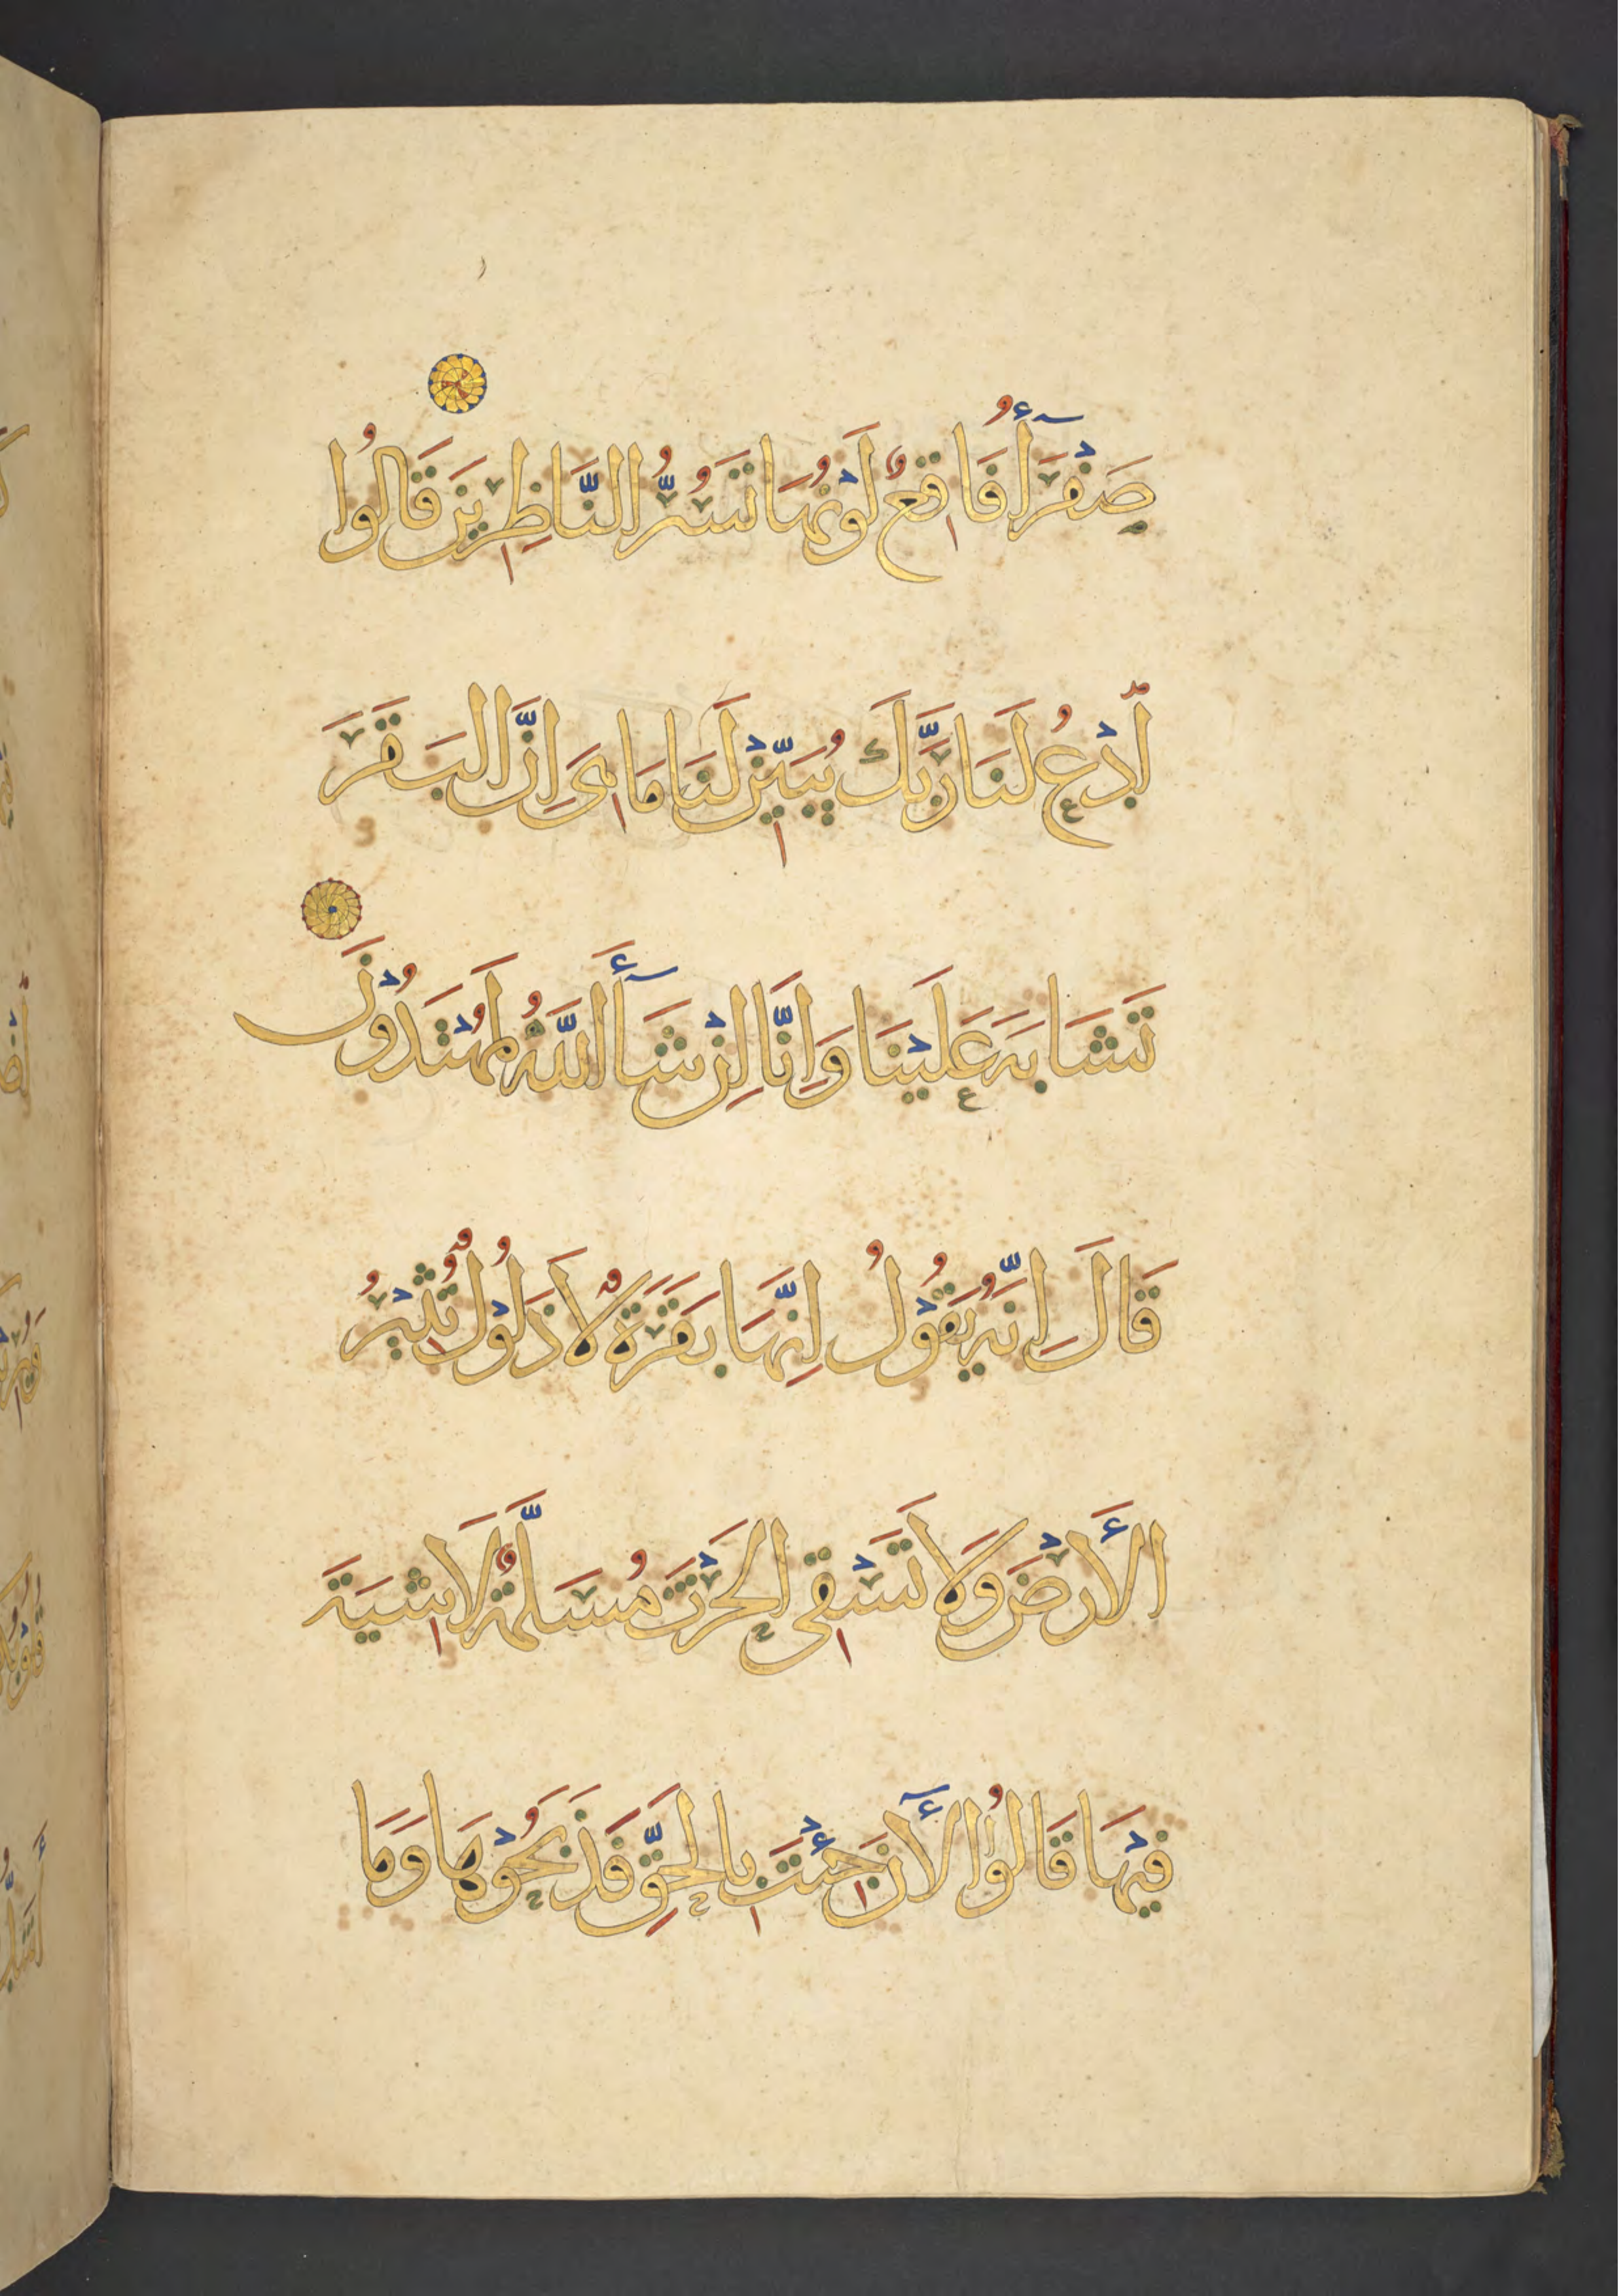 صَفْرَآءُ فَاقِعٌ لَوْنُهَا تَسُرُّ النَّاظِرِينَ قَالُوا
ادْعُ لَنَا رَبَّكَ يُبَيِّنْ لَنَا مَا هِيَ إِنَّ البَقَرَ
تَشَابَهَ عَلَيْنَا وَإِنَّا إِنْ شَآءَ اللَّهُ لَمُهْتَدُوْنَ
قَالَ إِنَّهُ يَقُوْلُ إِنَّهَا بَقَرَةٌ لَا ذَلُوْلٌ تُثِيْرُ
الأَرْضَ وَلَا تَسْقِى الحَرْثَ مُسَلَّمَةٌ لَا شِيَةَ
فِيْهَا قَالُوْا الآنَ جِئْتَ بِالحَقِّ فَذَبَحُوْهَا وَمَا